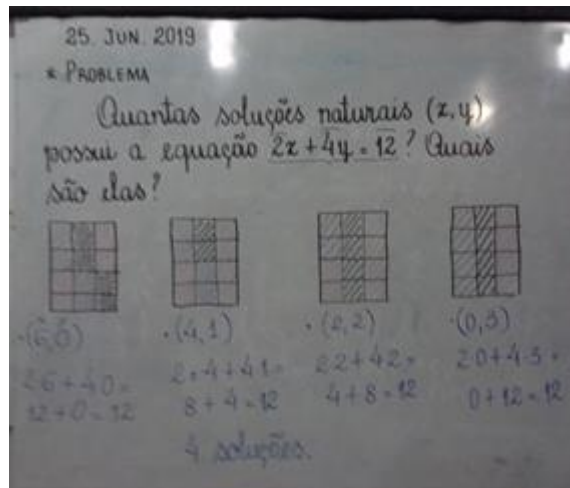 25. JUN. 2019
* PROBLEMA
Quantas soluções naturais (x,y)
possui a equação 2x+4y=12? Quais
são elas?
·(6,0) ·(4,1) ·(2,2) ·(0,3)
2·6+4·0= 2·4+4·1= 2·2+4·2= 2·0+4·3=
12+0=12 8+4=12 4+8=12 0+12=12
4 soluções.